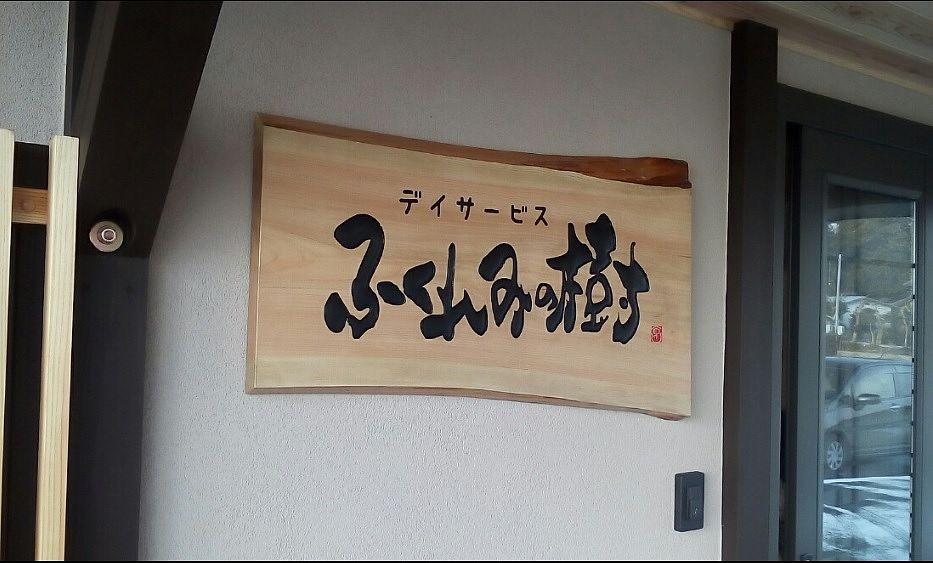 デイサービス
ふくれみの樹